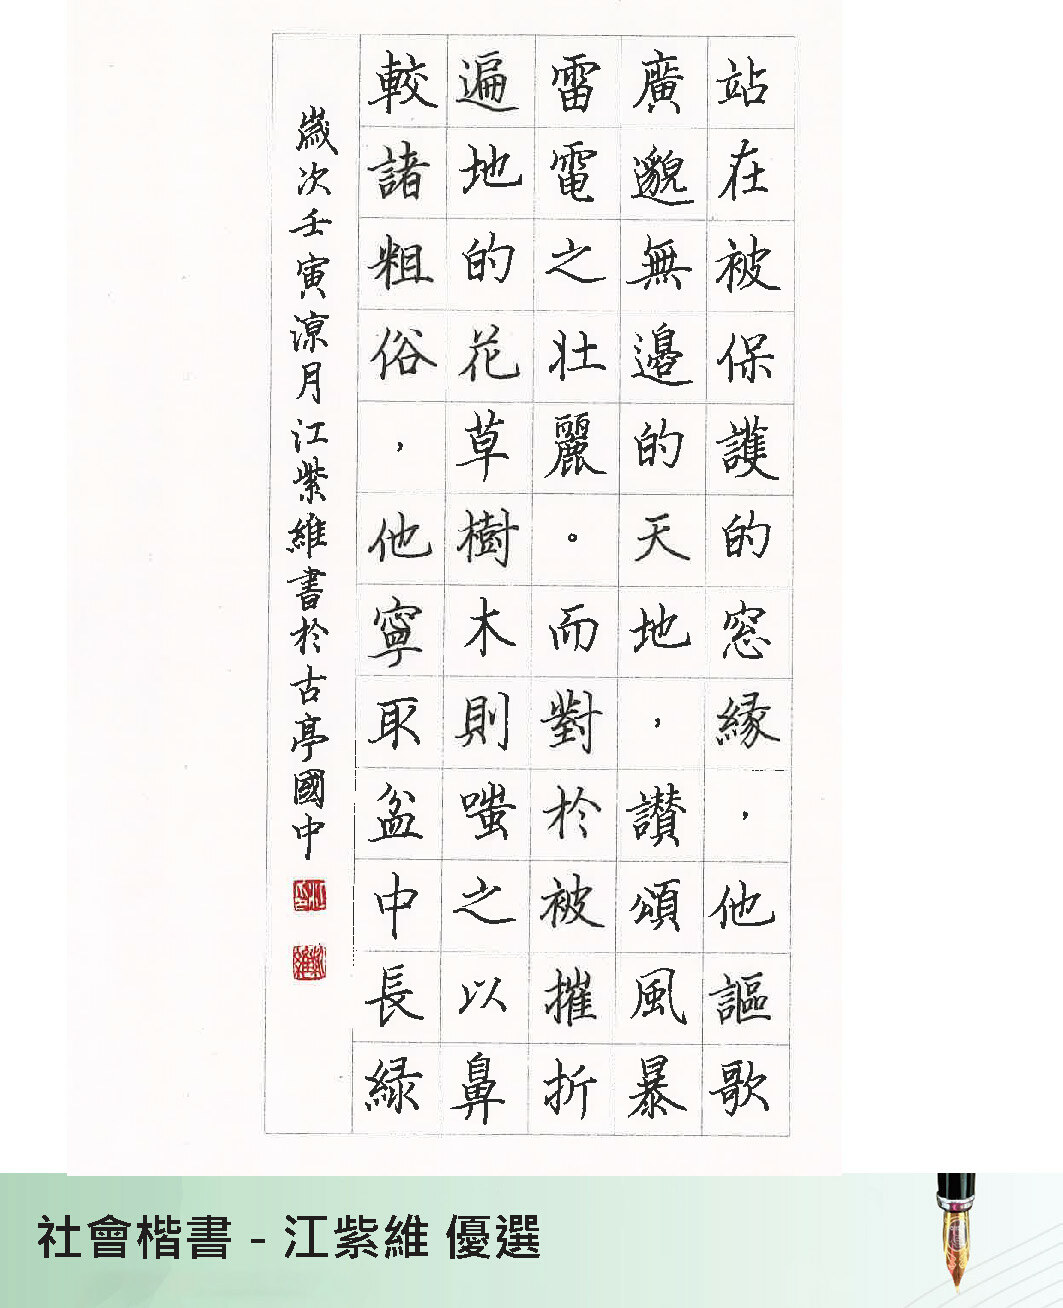 站在被保護的窓緣，他謳歌
廣邈無邊的天地，讚頌風暴
雷電之壯麗。而對於被摧折
遍地的花草樹木則嗤之以鼻
較諸粗俗，他寧取盆中長綠
歲次壬寅涼月江紫維書於古亭國中
社會楷書 - 江紫維 優選